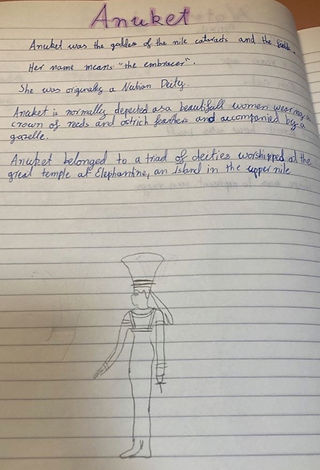 Anuket
Anuket was the goddess of the nile cataracts and the
Her name means "the embracer"
She was originally a Nubian Deity.
Anuket is normally depicted as a beautifull women wearing a
crown of reeds and ostrich feathers and accompanied by a
gazelle.
Anuket belonged to a triad of deities worshipped at the
great temple at Elephantine, an Island in the upper nile